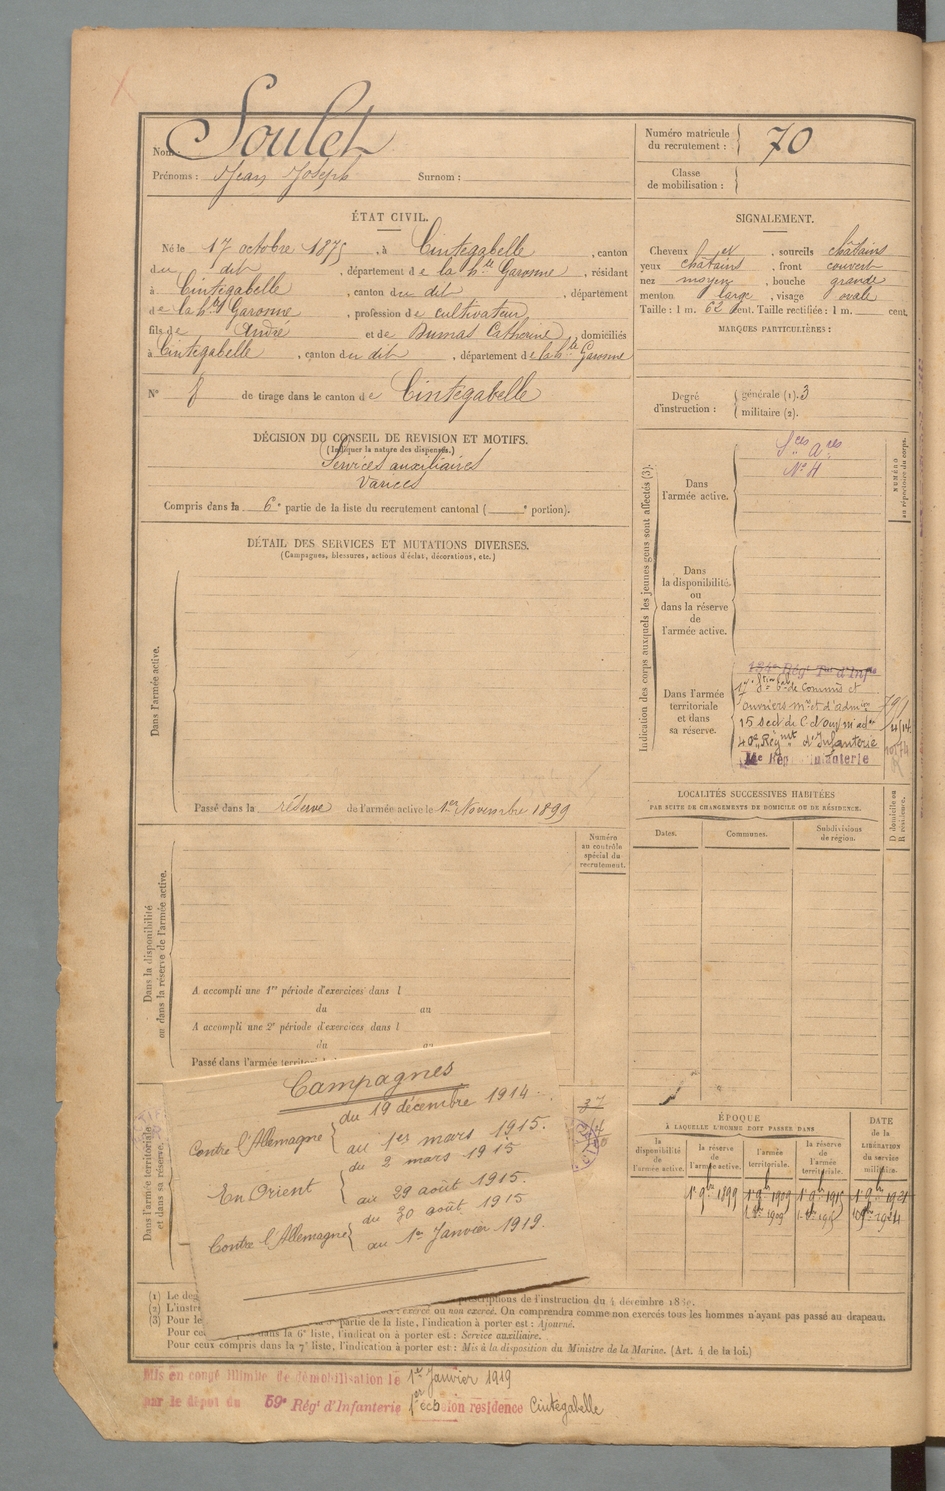 Nom: Soulet
Prénoms : Jean Joseph Surnom :
Numéro matricule du recrutement : 70
Classe de mobilisation :
ÉTAT CIVIL.
Né le 17 octobre 1875, à Cintegabelle, canton
du dit, département de la hte Garonne, résidant
à Cintegabelle, canton du dit, département
de la hte Garonne, profession de cultivateur,
fils de André et de Dumas Catherine, domiciliés
à Cintegabelle, canton du dit, département de la hte Garonne
N° 8 de tirage dans le canton de Cintegabelle
SIGNALEMENT.
Cheveux et, sourcils châtains
yeux châtains, front couvert
nez moyen, bouche grande
menton large, visage ovale
Taille : 1 m. 62 cent. Taille rectifiée : 1 m. cent.
MARQUES PARTICULIÈRES :
Degré d'instruction :
générale (1). 3
militaire (2).
DÉCISION DU CONSEIL DE REVISION ET MOTIFS.
(Indiquer la nature des dispenses.)
Services auxiliaires
Varices
Compris dans la 6e partie de la liste du recrutement cantonal ( e portion).
DÉTAIL DES SERVICES ET MUTATIONS DIVERSES.
(Campagnes, blessures, actions d'éclat, décorations, etc.)
Dans l'armée active.
Passé dans la réserve de l'armée active le 1er Novembre 1899
Indication des corps auxquels les jeunes gens sont affectés (3).
NUMÉRO au répertoire du corps.
Dans l'armée active.
Sces Ares
N° 4
Dans
la disponibilité
ou
dans la réserve
de
l'armée active.
Dans l'armée
territoriale
et dans
sa réserve.
134e Régt Tal d'Infie
de Commis et
ouvriers mres et d'admon
15 Sect de
40e Régmt d'Infanterie
Infanterie
LOCALITÉS SUCCESSIVES HABITÉES
PAR SUITE DE CHANGEMENTS DE DOMICILE OU DE RÉSIDENCE.
Dates.
Communes.
Subdivisions de région.
D domicile ou R résidence.
Dans la disponibilité
ou dans la réserve de l'armée active.
Numéro
au contrôle
spécial du
recrutement.
A accompli une 1re période d'exercices dans l
du au
A accompli une 2e période d'exercices dans l
du au
Passé dans l'armée territoriale
Dans l'armée territoriale
et dans sa réserve.
Campagnes
Contre l'Allemagne { du 19 décembre 1914
au 1er mars 1915.
En Orient { du 2 mars 1915
au 29 août 1915.
Contre l'Allemagne { du 30 août 1915
au 1er Janvier 1919.
37
ÉPOQUE
À LAQUELLE L'HOMME DOIT PASSER DANS
la disponibilité de l'armée active.
la réserve de l'armée active.
l'armée territoriale.
la réserve de l'armée territoriale.
DATE de la LIBÉRATION du service militaire.
1er 9bre 1899
1er 9bre 1909
1er 9bre 1915
1er 9bre 1921
(1) Le deg
prescriptions de l'instruction du 4 décembre 18
(2) L'instr
: exercé ou non exercé. On comprendra comme non exercés tous les hommes n'ayant pas passé au drapeau.
(3) Pour le
partie de la liste, l'indication à porter est : Ajourné.
Pour ceux compris dans la 6e liste, l'indication à porter est : Service auxiliaire.
Pour ceux compris dans la 7e liste, l'indication à porter est : Mis à la disposition du Ministre de la Marine. (Art. 4 de la loi.)
Mis en congé illimité de démobilisation le 1er Janvier 1919
par le dépôt du 59e Régt d'Infanterie 1er échelon résidence Cintegabelle